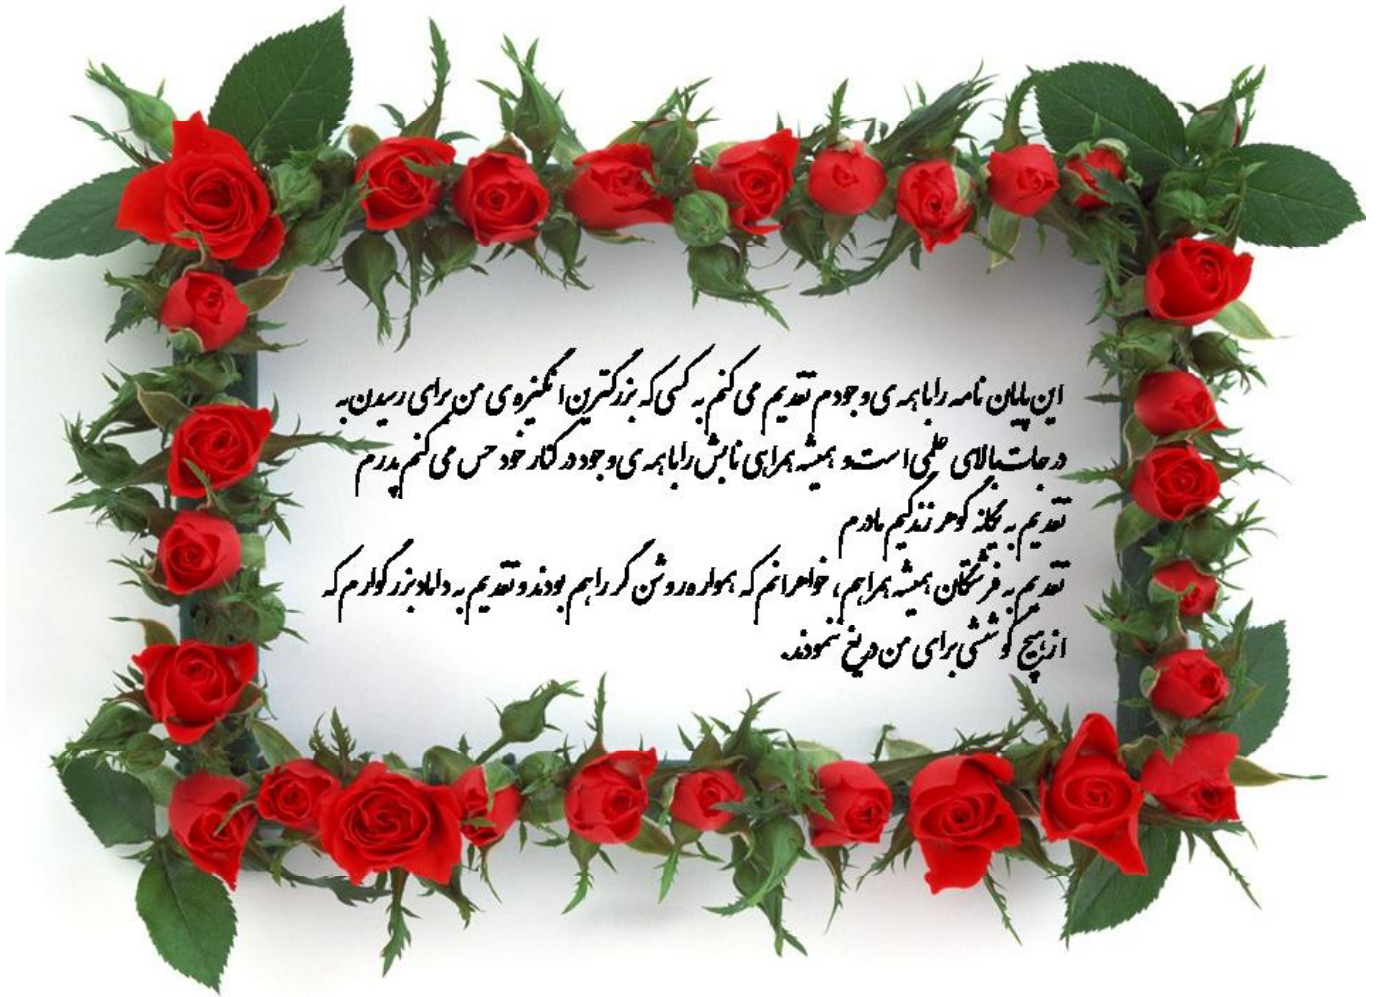 این پایان نامه را با همه ی وجودم تقدیم می کنم به کسی که بزرگترین انگیزه ی من برای رسیدن به
درجات بالای علمی است و همیشه همراهی نابش را با همه ی وجود در کنار خود حس می کنم پدرم
تقدیم به یگانه گوهر زندگیم مادرم
تقدیم به فرشتگان همیشه همراهم، خواهرانم که همواره روشن گر راهم بودند و تقدیم به داماد بزرگوارم که
از هیچ کوششی برای من دریغ ننمودند.